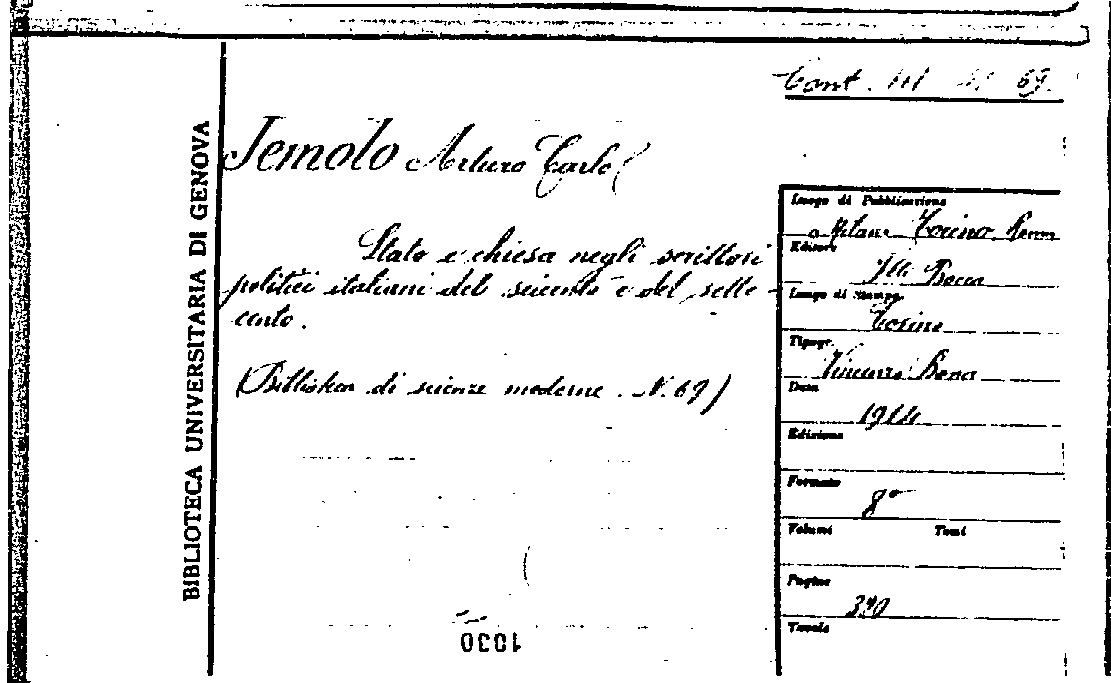 Cont. III 69.
BIBLIOTECA UNIVERSITARIA DI GENOVA
Jemolo Arturo Carlo
Stato e chiesa negli scrittori
politici italiani del seicento e del sette-
cento.
(Biblioteca di scienze moderne. N. 69)
Luogo di Pubblicazione
Milano Torino Roma
Editore
Flli Bocca
Luogo di Stampa
Torino
Tipogr.
Vincenzo Bona
Data
1914
Edizione
Formato
8°
Volumi Tomi
Pagine
Tavole
1030